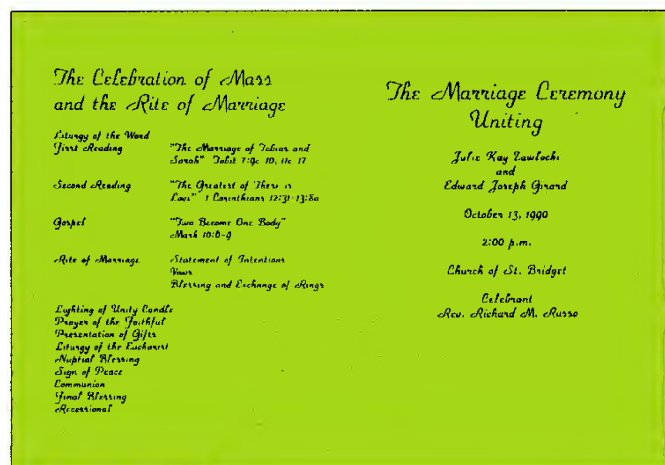 The Celebration of Mass
and the Rite of Marriage
Liturgy of the Word
First Reading "The Marriage of Tobias and
Sarah" Tobit 7:9c 10, 11c 17
Second Reading "The Greatest of These is
Love" 1 Corinthians 12:31-13:8a
Gospel "Two Become One Body"
Mark 10:6-9
Rite of Marriage Statement of Intentions
Vows
Blessing and Exchange of Rings
Lighting of Unity Candle
Prayer of the Faithful
Presentation of Gifts
Liturgy of the Eucharist
Nuptial Blessing
Sign of Peace
Communion
Final Blessing
Recessional
The Marriage Ceremony
Uniting
Julie Kay
and
Edward Joseph Girard
October 13, 1990
2:00 p.m.
Church of St. Bridget
Celebrant
Rev. Richard M. Russo